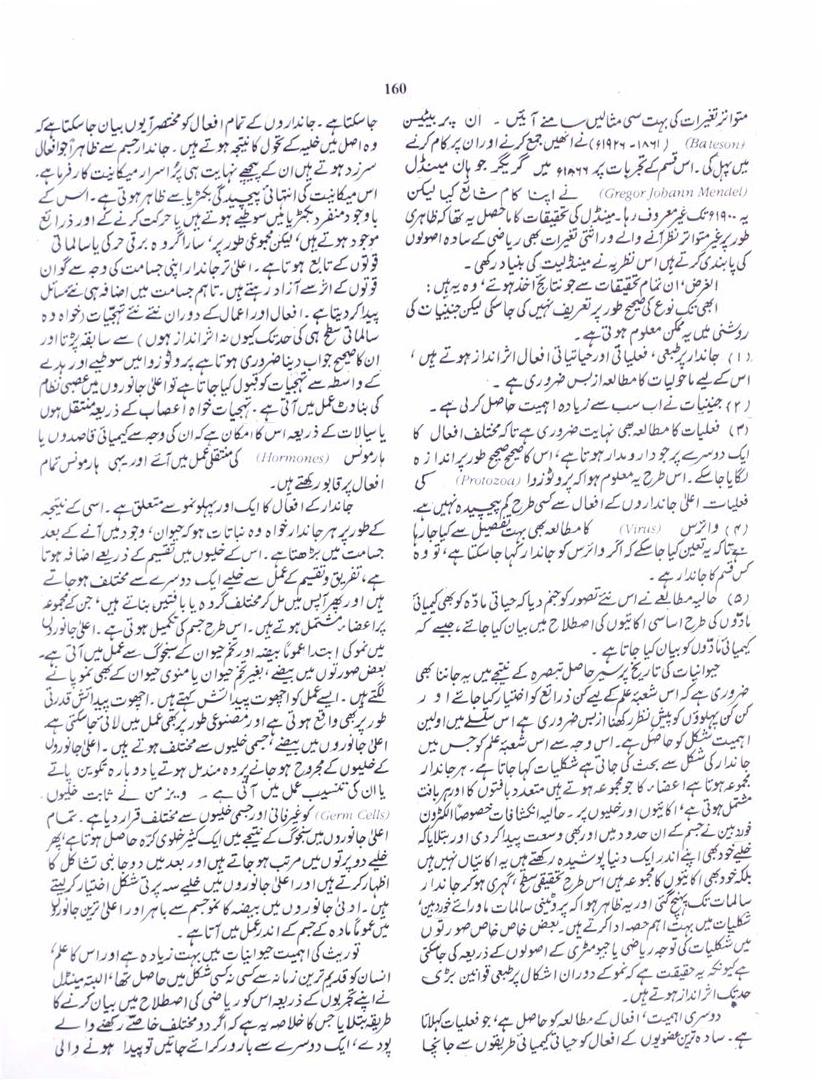 160
متواتر تغیرات کی بہت سی مثالیں سامنے آئیں ۔ ان پر بیٹیسن
(Bateson) (۱۸۶۱ - ۱۹۲۶ء) نے انھیں جمع کرنے اور ان پر کام کرنے
میں پہل کی۔ اس قسم کے تجربات پر ۱۸۶۶ء میں گریگر جوہان مینڈل
(Gregor Johann Mendel) نے اپنا کام شائع کیا لیکن
یہ ۱۹۰۰ء تک غیر معروف رہا۔ مینڈل کی تحقیقات کا ماحصل یہ تھا کہ ظاہری
طور پر غیر متواتر نظر آنے والے وراثتی تغیرات بھی ریاضی کے سادہ اصولوں
کی پابندی کرتے ہیں اس نظریہ نے مینڈلیت کی بنیاد رکھی۔
الغرض، ان تمام تحقیقات سے جو نتائج اخذ ہوتے، وہ یہ ہیں :
ابھی تک نوع کی صحیح طور پر تعریف نہیں کی جاسکی لیکن جنینیات کی
روشنی میں یہ ممکن معلوم ہوتی ہے۔
(۱) جاندار پر طبعی، فعلیاتی اور حیاتیاتی افعال اثر انداز ہوتے ہیں ،
اس کے لیے ماحولیات کا مطالعہ ازبس ضروری ہے ۔
(۲) جنینیات نے اب سب سے زیادہ اہمیت حاصل کرلی ہے ۔
(۳) فعلیات کا مطالعہ بھی نہایت ضروری ہے تاکہ مختلف افعال کا
ایک دوسرے پر جو دارومدار ہوتا ہے، اس کا صحیح صحیح طور پر اندازہ
لگایا جاسکے۔ اس طرح یہ معلوم ہوا کہ پروٹوزوا (Protozoa) کی
فعلیات اعلیٰ جانداروں کے افعال سے کسی طرح کم پیچیدہ نہیں ہے۔
(۴) وائرس (Virus) کا مطالعہ بھی بہت تفصیل سے کیا جارہا
ہے تاکہ یہ تعین کیا جاسکے کہ اگر وائرس کو جاندار کہا جاسکتا ہے، تو وہ
کس قسم کا جاندار ہے ۔
(۵) حالیہ مطالعے نے اس نئے تصور کو جنم دیا کہ حیاتی مادّہ کو بھی کیمیائی
مادّوں کی طرح اساسی اکائیوں کی اصطلاح میں بیان کیا جائے، جیسے کہ
کیمیائی مادّوں کو بیان کیا جاتا ہے ۔
حیوانیات کی تاریخ پر سیر حاصل تبصرہ کے نتیجے میں یہ جاننا بھی
ضروری ہے کہ اس شعبۂ علم کے لیے کن ذرائع کو اختیار کیا جائے اور
کن کن پہلوؤں کو پیش نظر رکھنا ازبس ضروری ہے اس سلسلے میں اولین
اہمیت تشکل کو حاصل ہے۔ اس وجہ سے اس شعبۂ علم کو جس میں
جاندار کی شکل سے بحث کی جاتی ہے شکلیات کہا جاتا ہے۔ ہر جاندار
مجموعہ ہوتا ہے اعضاء کا جو مجموعہ ہوتے ہیں متعدد بافتوں کا اور ہر بافت
مشتمل ہوتی ہے، اکائیوں اور خلیوں پر ۔ حالیہ انکشافات خصوصاً الکٹرون
خوردبین نے جسم کے ان حدود میں اور بھی وسعت پیدا کردی اور بتلایا کہ
خلیے خود بھی اپنے اندر ایک دنیا پوشیدہ رکھتے ہیں یہ اکائیاں نہیں ہیں
بلکہ خود بھی اکائیوں کا مجموعہ ہیں اس طرح تحقیقی سطح، گہری ہوکر جاندار
سالمات تک پہنچ گئی اور یہ ظاہر ہوا کہ پروٹینی سالمات ماورائے خوردبین،
شکلیات میں بہت اہم حصہ ادا کرتے ہیں۔ بعض خاص خاص صورتوں
میں شکلیات کی توجیہ ریاضی یا جیومٹری کے اصولوں کے ذریعہ کی جاسکتی
ہے کیونکہ یہ حقیقت ہے کہ نمو کے دوران اشکال پر طبعی قوانین بڑی
حد تک اثر انداز ہوتے ہیں۔
دوسری اہمیت، افعال کے مطالعہ کو حاصل ہے، جو فعلیات کہلاتا
ہے۔ سادہ ترین عضویوں کے افعال کو حیاتی کیمیائی طریقوں سے جانچا
جاسکتا ہے۔ جانداروں کے تمام افعال کو مختصراً یوں بیان جاسکتا ہے کہ
وہ اصل میں خلیہ کے تحول کا نتیجہ ہوتے ہیں۔ جاندار جسم سے ظاہراً جو افعال
سرزد ہوتے ہیں ان کے پیچھے نہایت ہی پُر اسرار میکانیت کارفرما ہے۔
اس میکانیت کی انتہائی پیچیدگی بکٹیریا سے ظاہر ہوتی ہے۔ اس کے
باوجود منفرد بکٹیریا میں سوطیے ہوتے ہیں یا حرکت کرنے کے اور ذرائع
موجود ہوتے ہیں، لیکن مجموعی طور پر، سارا گروہ برقی حرکی یا سالماتی
قوتوں کے تابع ہوتا ہے۔ اعلیٰ تر جاندار اپنی جسامت کی وجہ سے گو ان
قوتوں کے اثر سے آزاد رہتے ہیں۔ تاہم جسامت میں اضافہ ہی نئے مسائل
پیدا کردیتا ہے۔ افعال اور اعمال کے دوران نئے نئے تہیجات (خواہ وہ
سالماتی سطح ہی کی حد تک کیوں نہ اثر انداز ہوں) سے سابقہ پڑتا اور
ان کا صحیح جواب دینا ضروری ہوتا ہے پروٹوزوا میں سوطیے اور ہدبے
کے واسطہ سے تہیجات کو قبول کیا جاتا ہے تو اعلیٰ جانوروں میں عصبی نظام
کی بناوٹ عمل میں آتی ہے ۔ تہیجات خواہ اعصاب کے ذریعہ منتقل ہوں
یا سیالات کے ذریعہ اس کا امکان ہے کہ ان کی وجہ سے کیمیائی قاصدوں یا
ہارمونس (Hormones) کی منتقلی عمل میں آئے اور یہی ہارمونس تمام
افعال پر قابو رکھتے ہیں۔
جاندار کے افعال کا ایک اور پہلو نمو سے متعلق ہے۔ اسی کے نتیجہ
کے طور پر ہر جاندار خواہ وہ نباتات ہو کہ حیوان، وجود میں آنے کے بعد
جسامت میں بڑھتا ہے۔ اس کے خلیوں میں تقسیم کے ذریعے اضافہ ہوتا
ہے، تفریق و تقسیم کے عمل سے خلیے ایک دوسرے سے مختلف ہوجاتے
ہیں اور پھر آپس میں مل کر مختلف گروہ یا بافتیں بناتے ہیں، جن کے مجموعہ
پر اعضاء مشتمل ہوتے ہیں۔ اس طرح جسم کی تکمیل ہوتی ہے۔ اعلیٰ جانوروں
میں نمو کی ابتدا عموماً بیضہ اور تخم حیوان کے سنجوگ سے عمل میں آتی ہے۔
بعض صورتوں میں بیضے، بغیر تخم حیوان یا منوی حیوان کے بھی نمو پانے
لگتے ہیں۔ ایسے عمل کو اچھوت پیدائش کہتے ہیں۔ اچھوت پیدائش قدرتی
طور پر بھی واقع ہوتی ہے اور مصنوعی طور پر بھی عمل میں لائی جاسکتی ہے
اعلیٰ جانوروں میں بیضے، جسمی خلیوں سے مختلف ہوتے ہیں۔ اعلیٰ جانوروں
کے خلیوں کے مجروح ہوجانے پر وہ مندمل ہوتے یا دوبارہ تکوین پاتے
یا ان کی تنسیب عمل میں آتی ہے ۔ ویزمن نے ثابت خلیوں
(Germ Cells) کو غیر فانی اور جسمی خلیوں سے مختلف قرار دیا ہے۔ تمام
اعلیٰ جانوروں میں سنجوگ کے نتیجے میں ایک کثیر خلوی کرّہ حاصل ہوتا ہے، پھر
خلیے دو پرتوں میں مرتب ہوجاتے ہیں اور بعد میں دو جانبی تشاکل کا
اظہار کرتے ہیں اور اعلیٰ جانوروں میں خلیے سہ پرتی شکل اختیار کرلیتے
ہیں۔ ادنیٰ جانوروں میں بیضہ کا نمو جسم سے باہر اور اعلیٰ ترین جانوروں
میں عموماً مادہ کے جسم کے اندر عمل میں آتا ہے۔
توریث کی اہمیت حیوانیات میں بہت زیادہ ہے اور اس کا علم،
انسان کو قدیم ترین زمانہ سے کسی نہ کسی شکل میں حاصل تھا، البتہ مینڈل
نے اپنے تجربوں کے ذریعہ اس کو ریاضی کی اصطلاح میں بیان کرنے کا
طریقہ بتلایا جس کا خلاصہ یہ ہے کہ اگر دو مختلف خاصے رکھنے والے
پودے، ایک دوسرے سے بارور کرائے جائیں تو پیدا ہونے والی